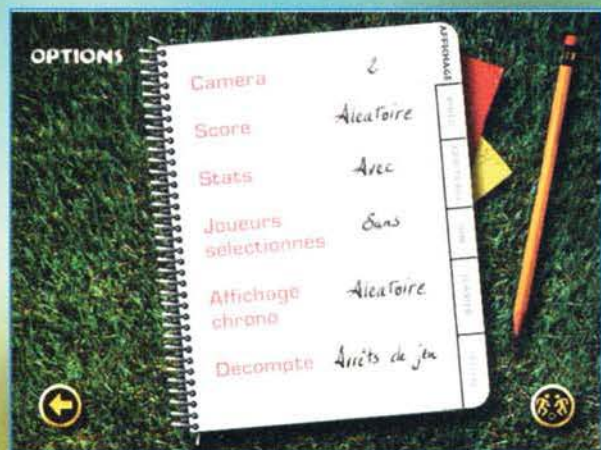 OPTIONS
AFFICHAGE
Camera 2
Score Aleatoire
Stats Avec
Joueurs Sans
selectionnes
Affichage Aleatoire
chrono
Decompte Arrêts de jeu